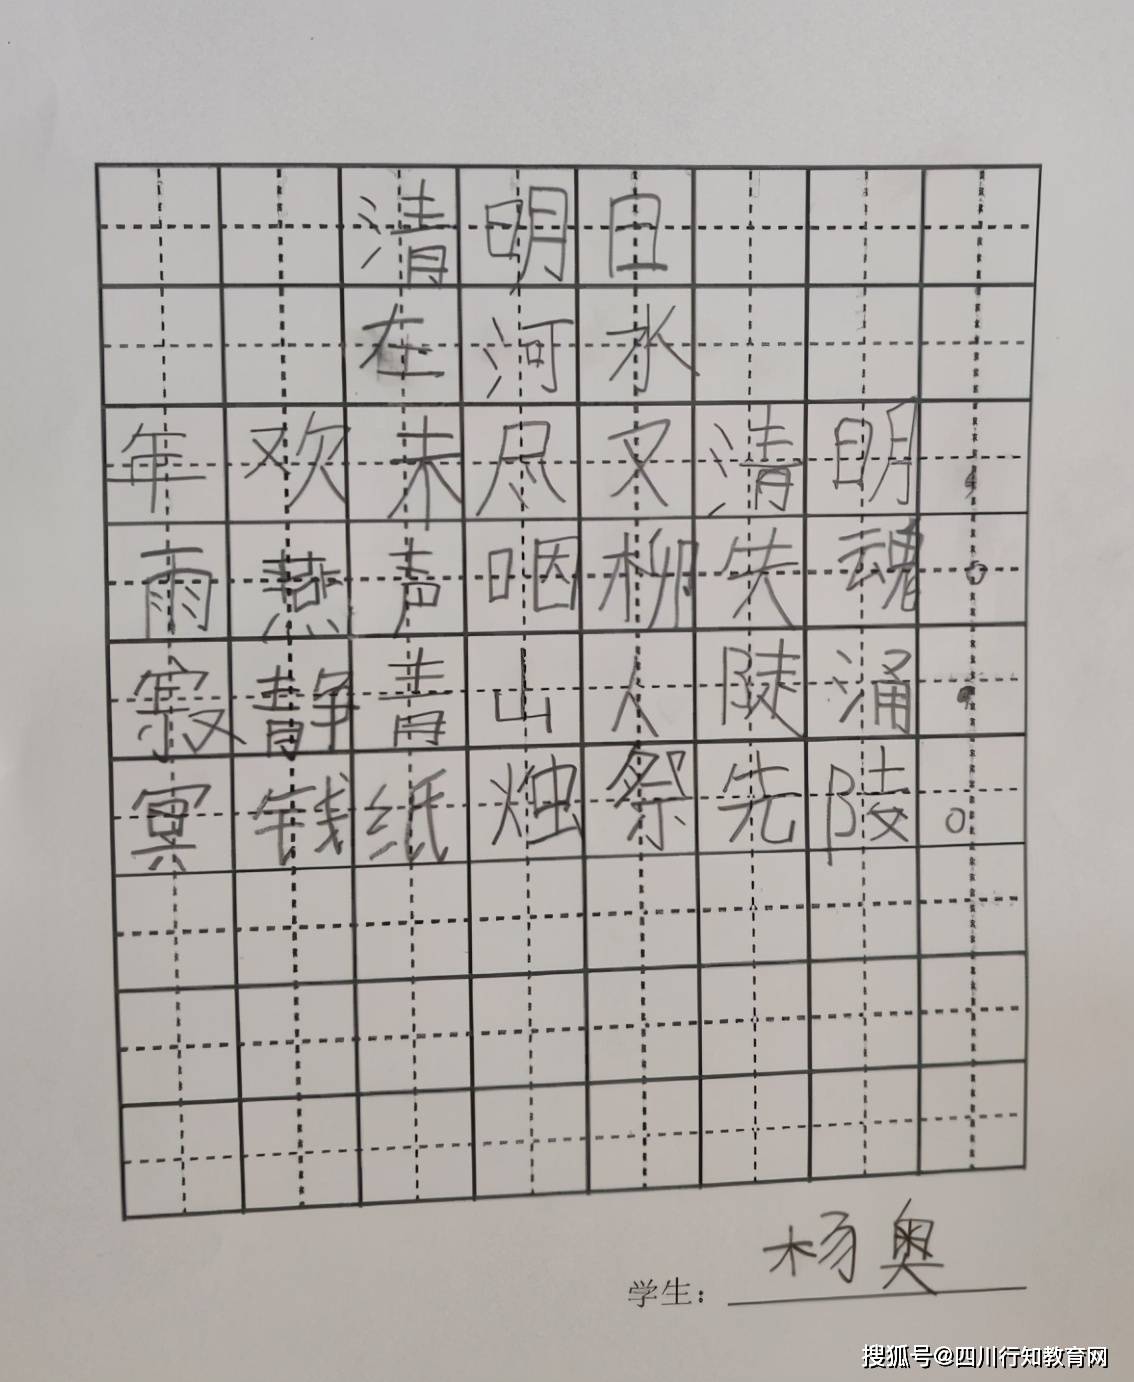 清明日
在河水
年欢未尽又清明，
雨燕声咽柳失魂。
寂静青山人陡涌，
冥钱纸烛祭先陵。
学生：杨奥
搜狐号@四川行知教育网